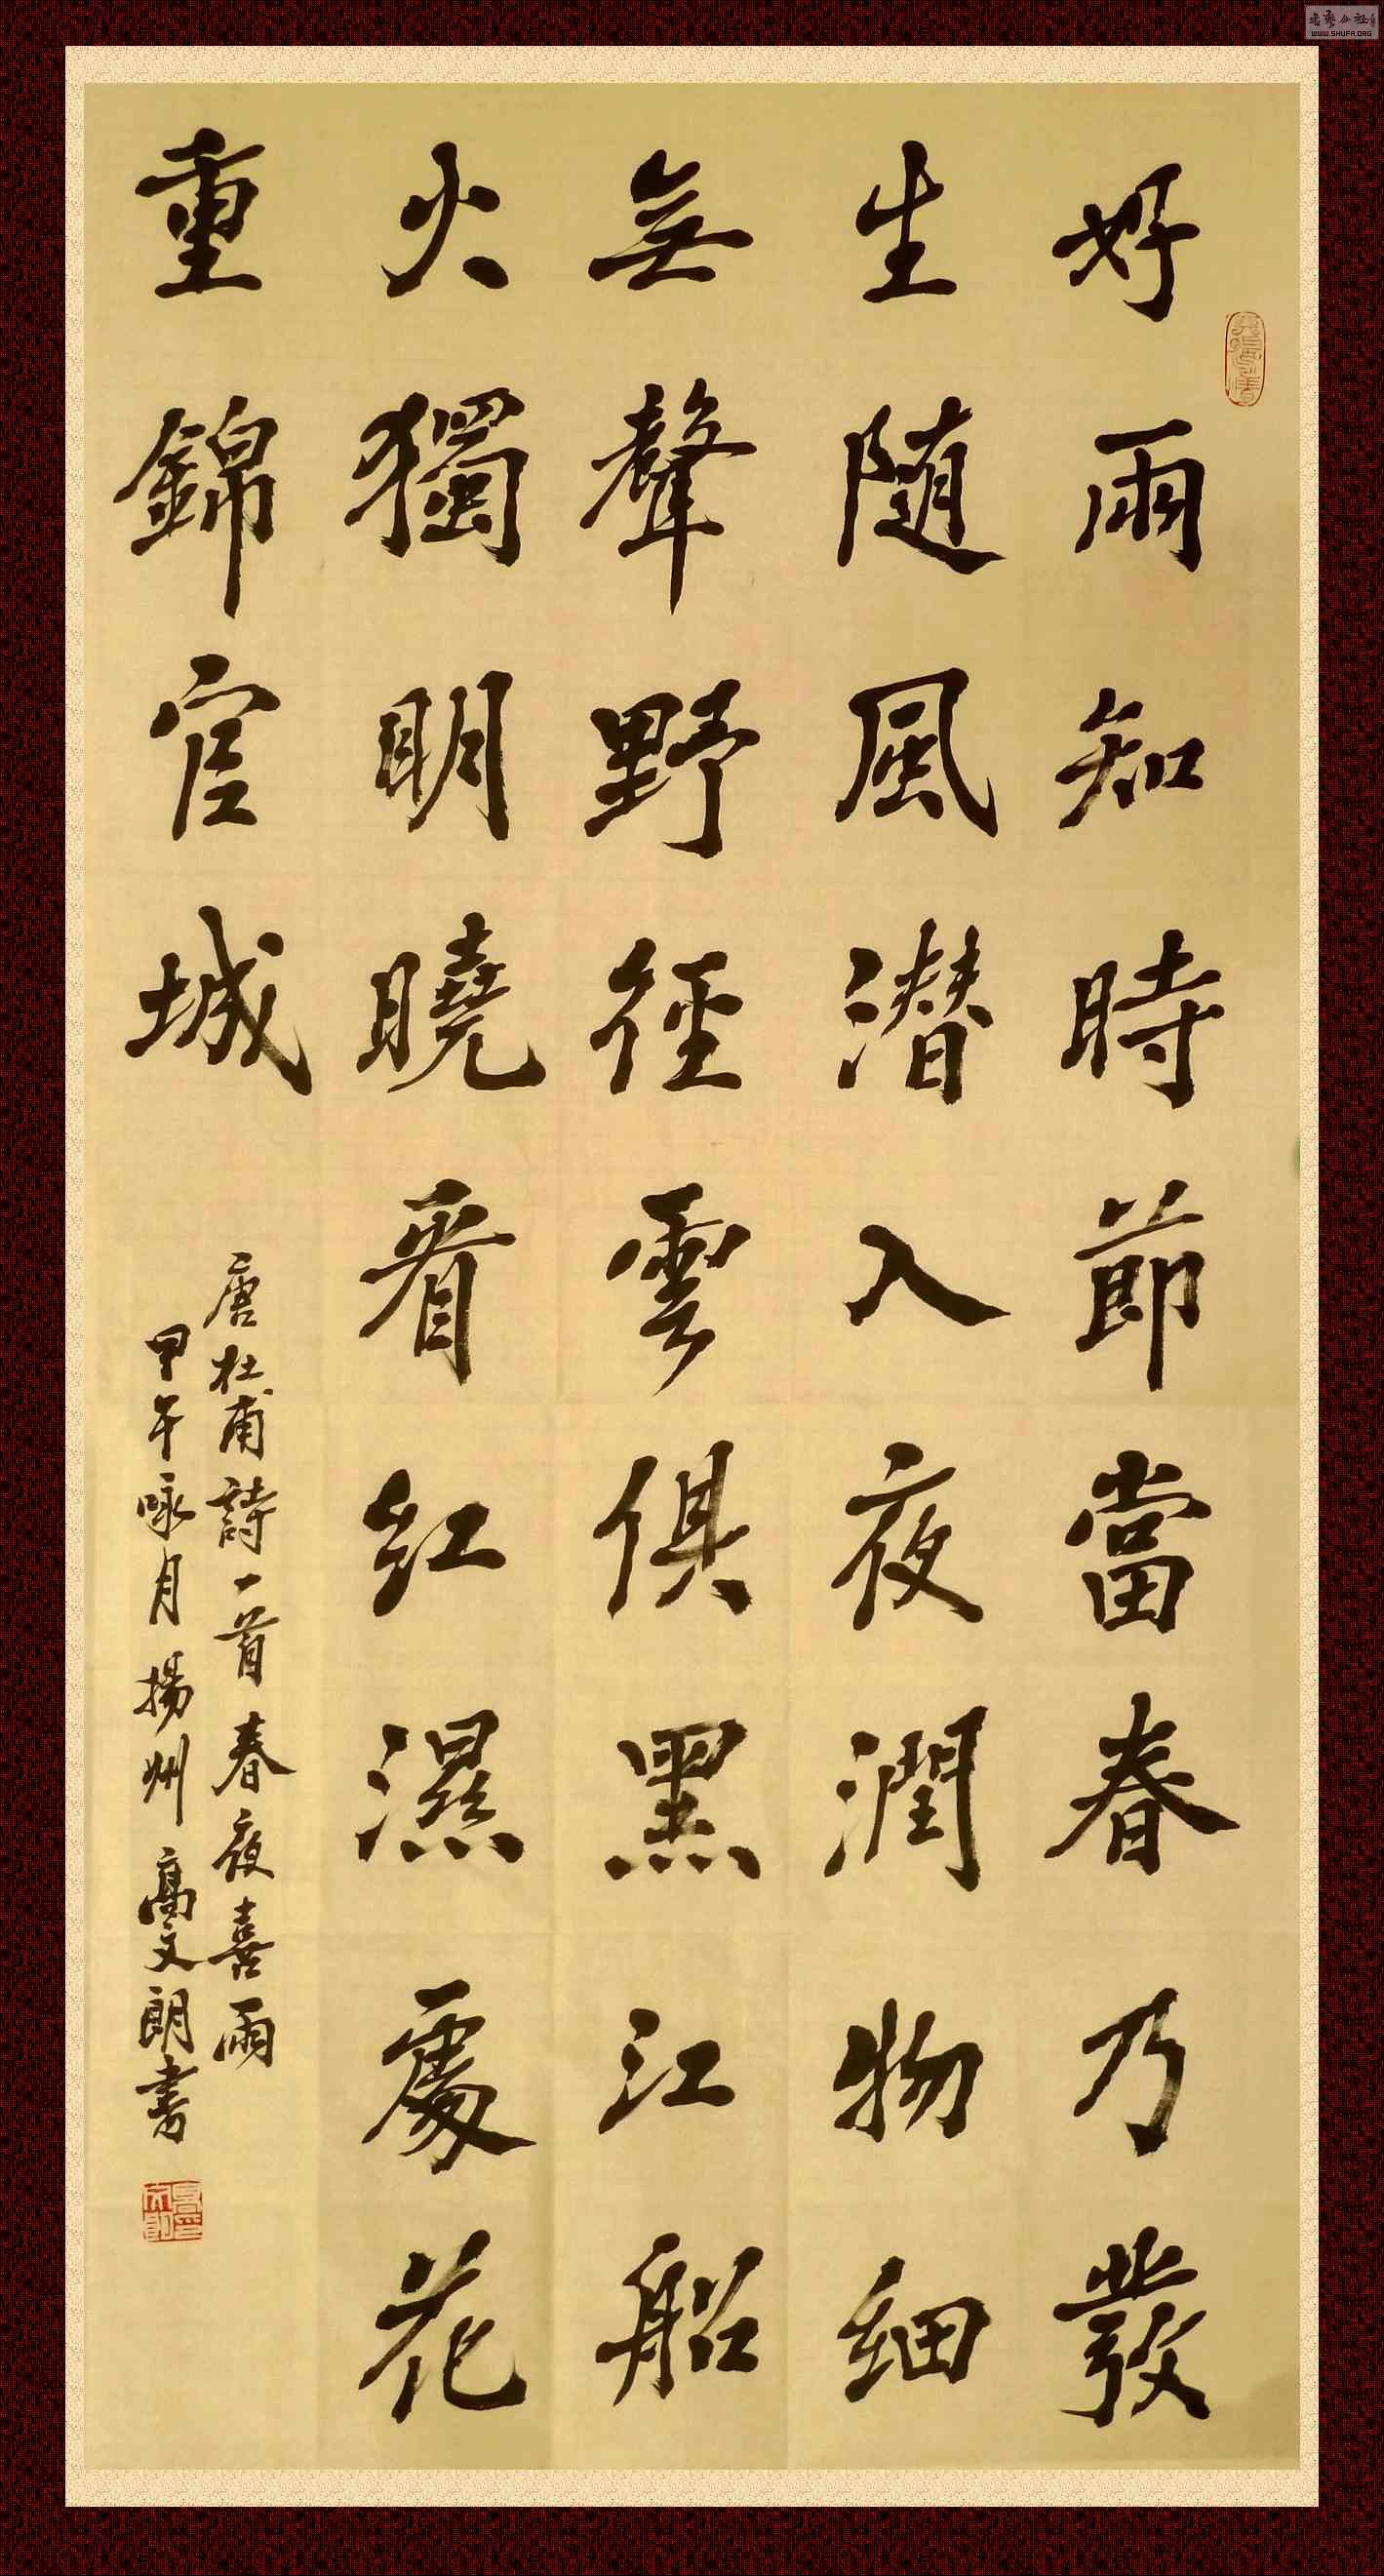 好雨知時節當春乃發
生随風潜入夜潤物細
無聲野徑雲俱黑江船
火獨明曉看紅濕處花
重錦官城
唐杜甫詩一首春夜喜雨
甲午咏月揚州高文朗書
WWW.SHUFA.ORG